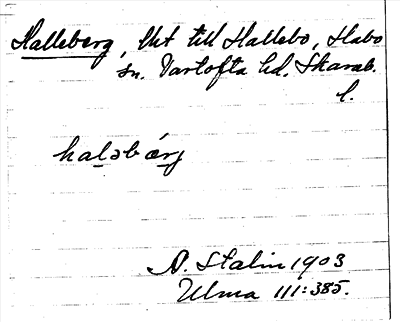 Halleberg, lht till Hallebo, Habo
sn. Vartofta hd. Skarab.
l.
haləbærj
A. Stalin 1903
Ulma 111:385.